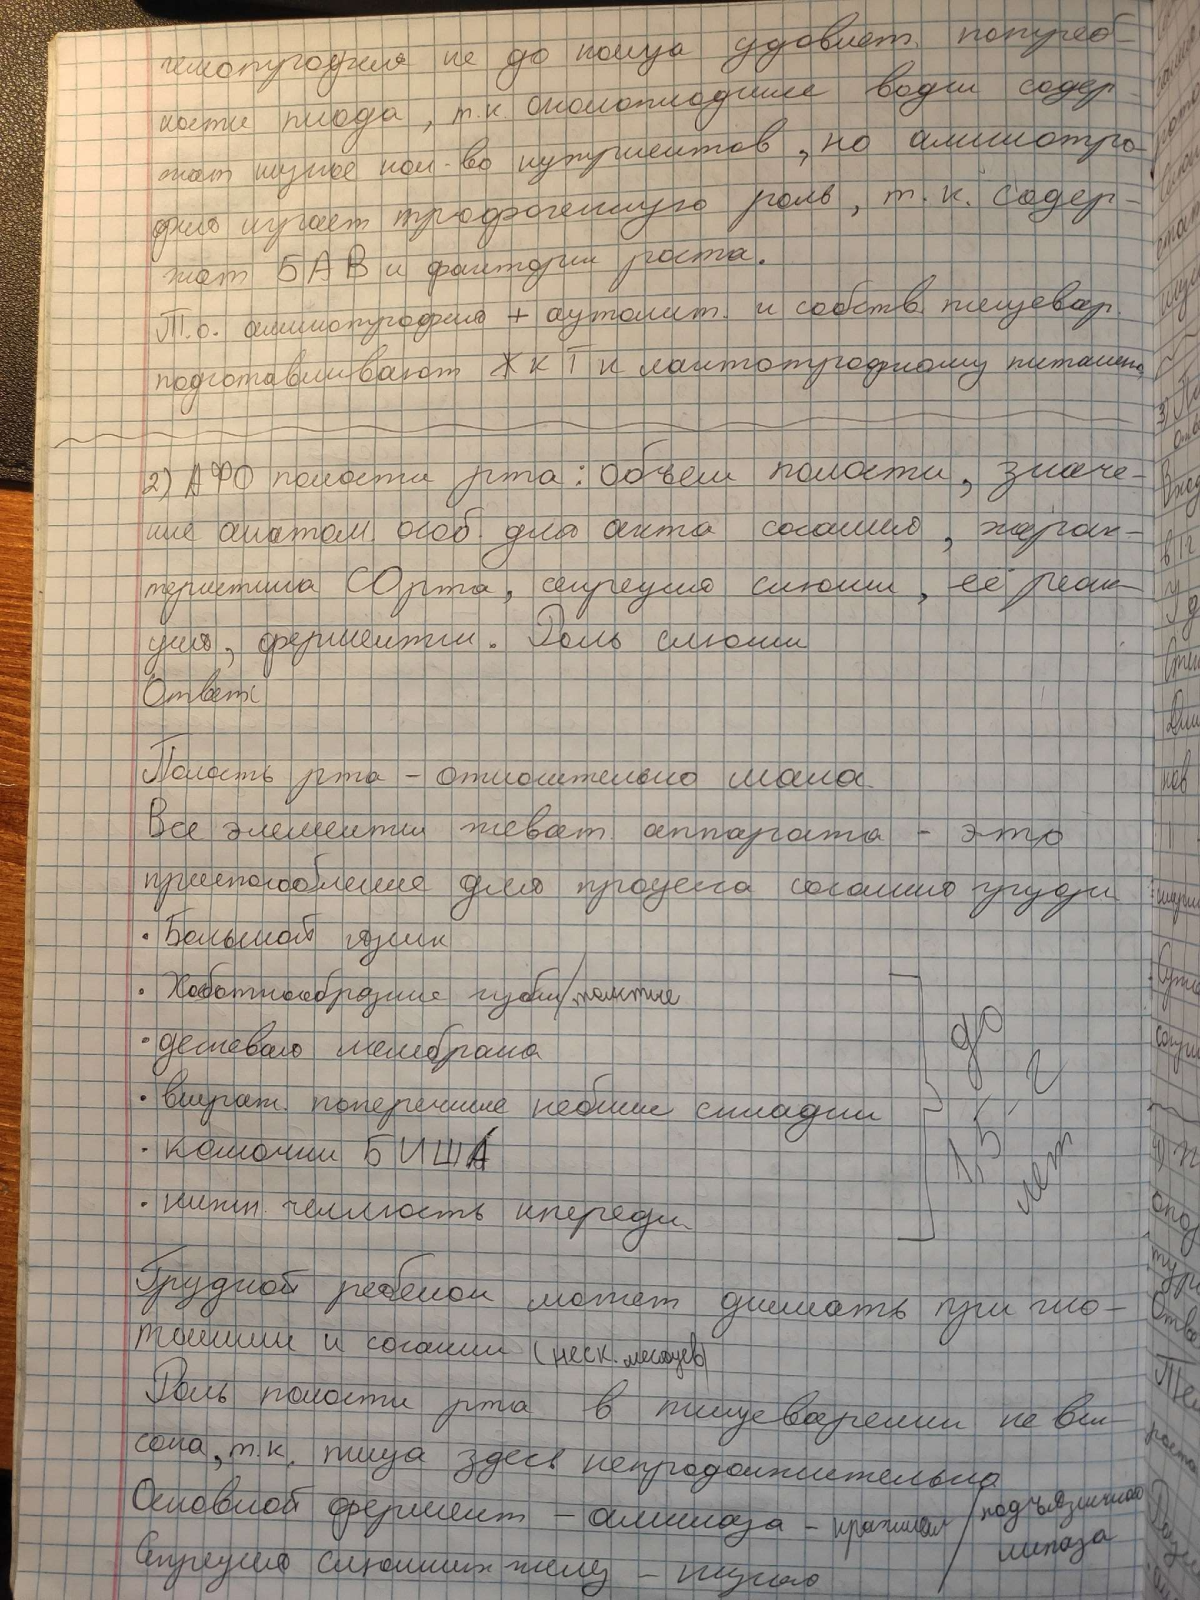 гемотрофия не до конца удовлет. потреб-
ности плода, т.к. околоплодные воды содер-
жат низкое кол-во нутриентов, но амниотро-
фия играет трофогенную роль, т.к. содер-
жат БАВ и факторы роста.
Т.о. амниотрофия + аутолит. и собств. пищевар.
подготавливают ЖКТ к лактотрофному питанию
2) АФО полости рта: объем полости, значе-
ние анатом. особ. для акта сосания, харак-
теристика СО рта, секреция слюны, её реак-
ция, ферменты. Роль слюны
Ответ:
Полость рта - относительно мала.
Все элементы жеват. аппарата - это
приспособление для процесса сосания груди
· Большой язык
· Хоботнообразные губы/толстые
· десневая мембрана
· выраж. поперечные небные складки
· комочки БИША
· нижн. челюсть кпереди
до
1,5-2
лет
Грудной ребенок может дышать при гло-
тании и сосании (неск. месяцев)
Роль полости рта в пищеварении не вы-
сока, т.к. пища здесь непродолжительно
Основной фермент - амилаза - крахмал / подъязычная
липаза
Секреция слюнных желез - низкая